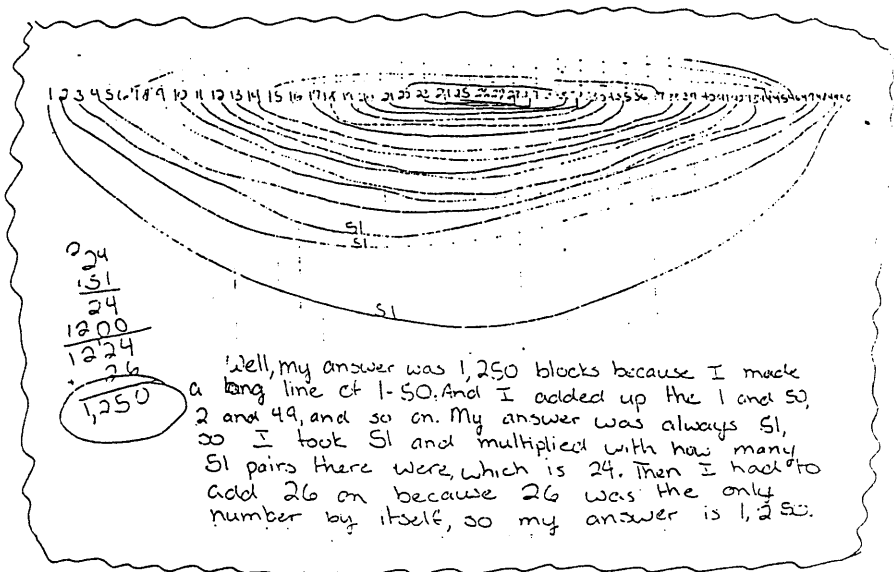 1 2 3 4 5 6 7 8 9 10 11 12 13 14 15 16 17 18 19 20 21 22 23 24 25 26 27 28
51
51
51
24
151
24
1200
1224
26
1,250
Well, my answer was 1,250 blocks because I made
a long line of 1-50. And I added up the 1 and 50,
2 and 49, and so on. My answer was always 51,
so I took 51 and multiplied with how many
51 pairs there were, which is 24. Then I had to
add 26 on because 26 was the only
number by itself, so my answer is 1,250.